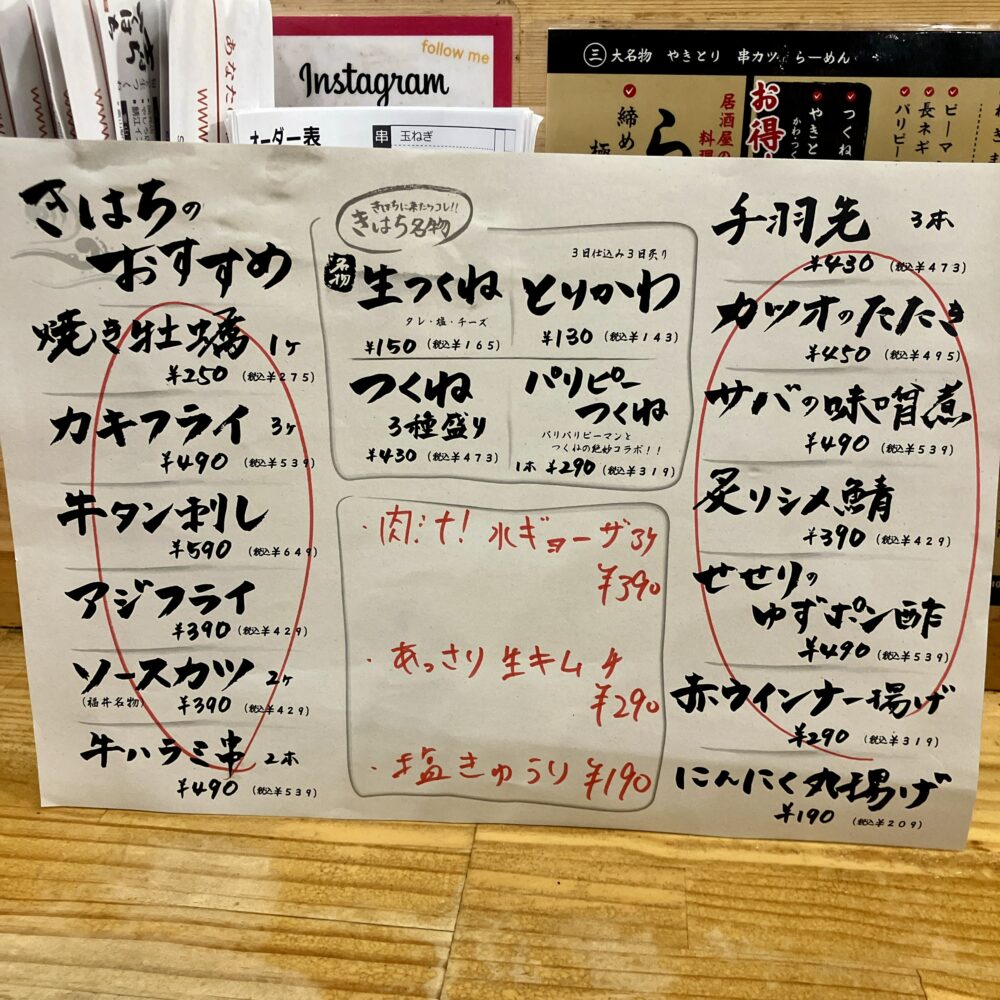 follow me
Instagram
オーダー表
串 玉ねぎ
三 大名物 やきとり 串カツ らーめん
あなた
締め
居酒屋の
料理
お得
やきと
かわ・つく
つくね
ピーマ
長ネギ
バリピー
きはちの
おすすめ
焼き牡蠣 1ケ
¥250 (税込¥275)
カキフライ 3ケ
¥490 (税込¥539)
牛タン刺し
¥590 (税込¥649)
アジフライ
¥390 (税込¥429)
ソースカツ 2ケ
(福井名物) ¥390 (税込¥429)
牛ハラミ串 2本
¥490 (税込¥539)
きはちに来たらコレ!!
きはち名物
名物 生つくね
タレ・塩・チーズ
¥150 (税込¥165)
3日仕込み3日炙り
とりかわ
¥130 (税込¥143)
つくね
3種盛り
¥430 (税込¥473)
パリピー
つくね
バリバリピーマンと
つくねの絶妙コラボ!!
1本 ¥290 (税込¥319)
・肉汁!水ギョーザ3ケ
¥390
・あっさり生キムチ
¥290
・塩きゅうり ¥190
手羽先 3本
¥430 (税込¥473)
カツオのたたき
¥450 (税込¥495)
サバの味噌煮
¥490 (税込¥539)
炙りシメ鯖
¥390 (税込¥429)
せせりの
ゆずポン酢
¥490 (税込¥539)
赤ウインナー揚げ
¥290 (税込¥319)
にんにく丸揚げ
¥190 (税込¥209)